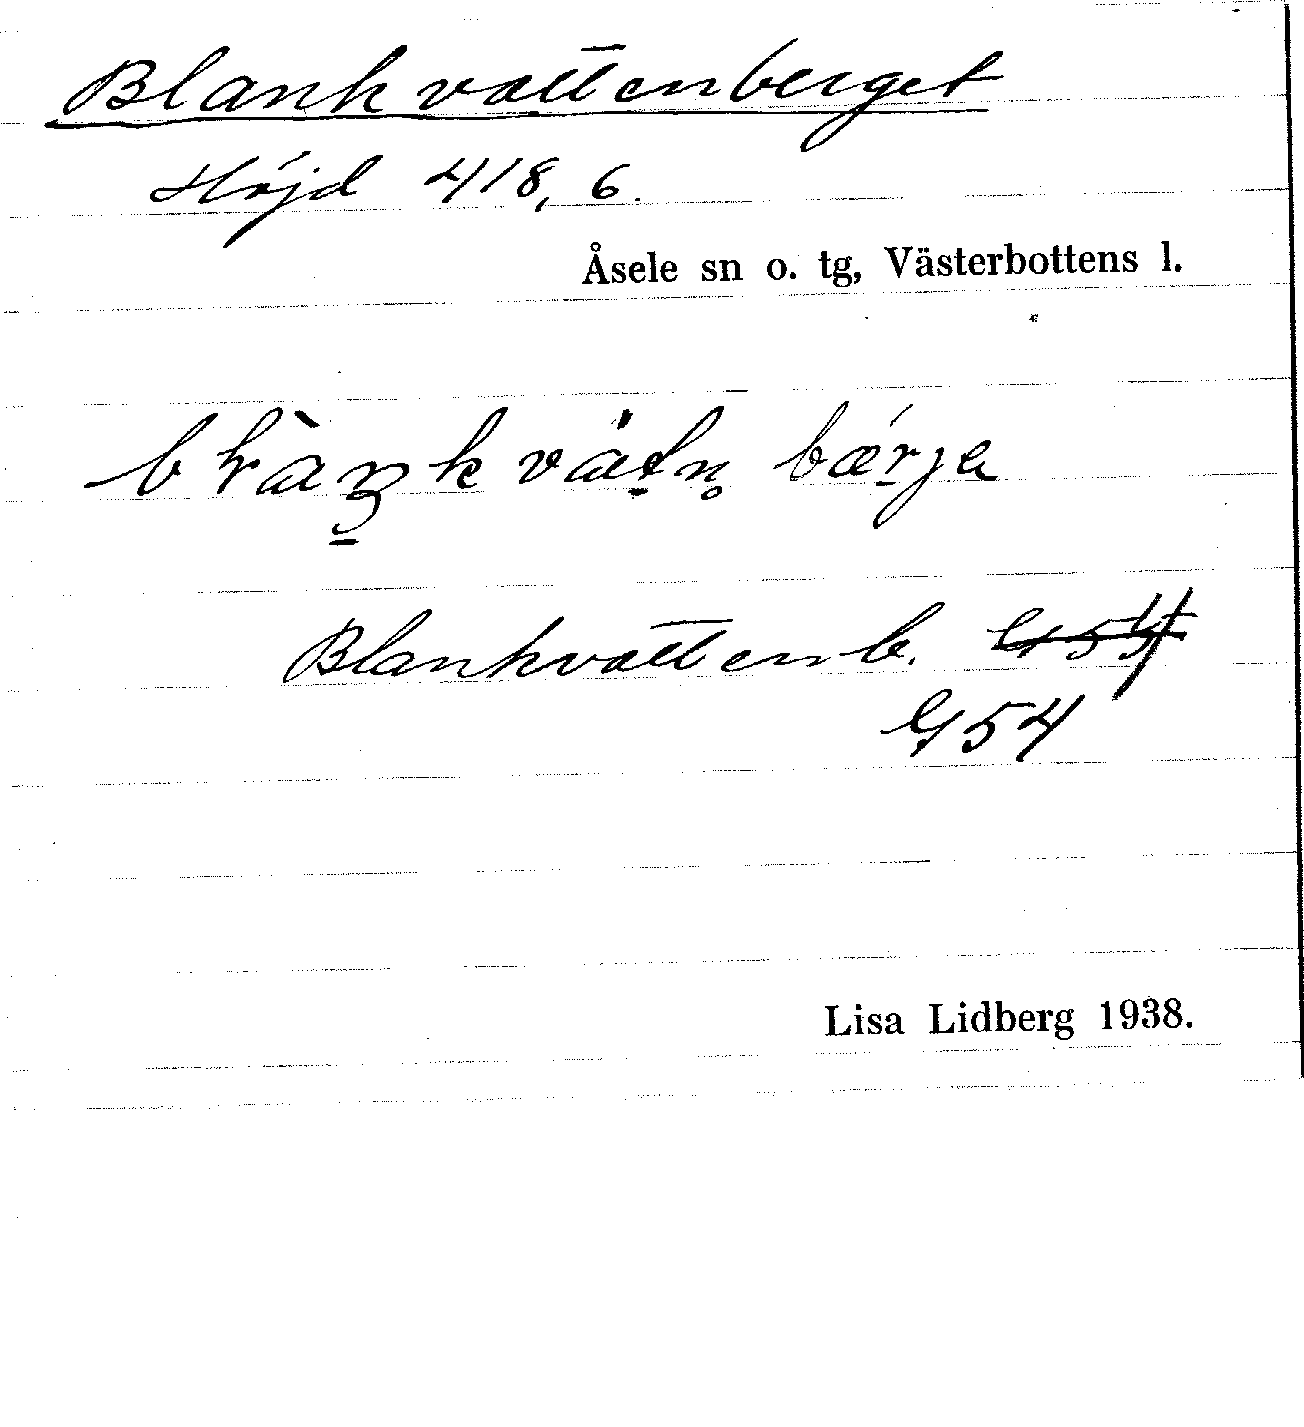 Blankvattenberget
Höjd 418,6.
Åsele sn o. tg, Västerbottens l.
Blankvattenb.
G54
Lisa Lidberg 1938.